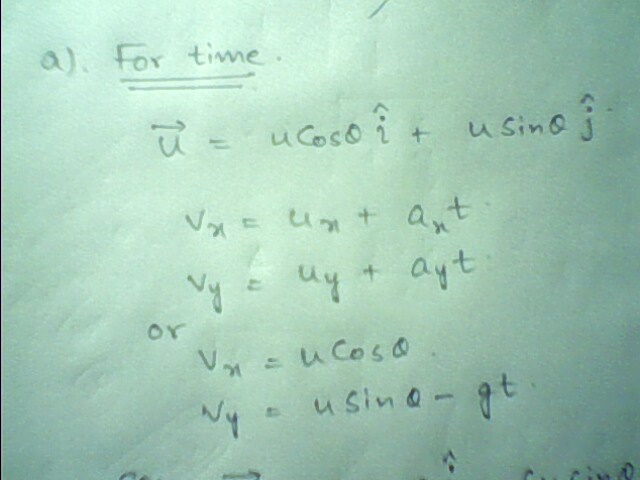 a). For time.
u⃗ = u cosθ î + u sinθ ĵ
vₓ = uₓ + aₓt
v_y = u_y + a_y t
or
vₓ = u cosθ.
v_y = u sinθ - gt.